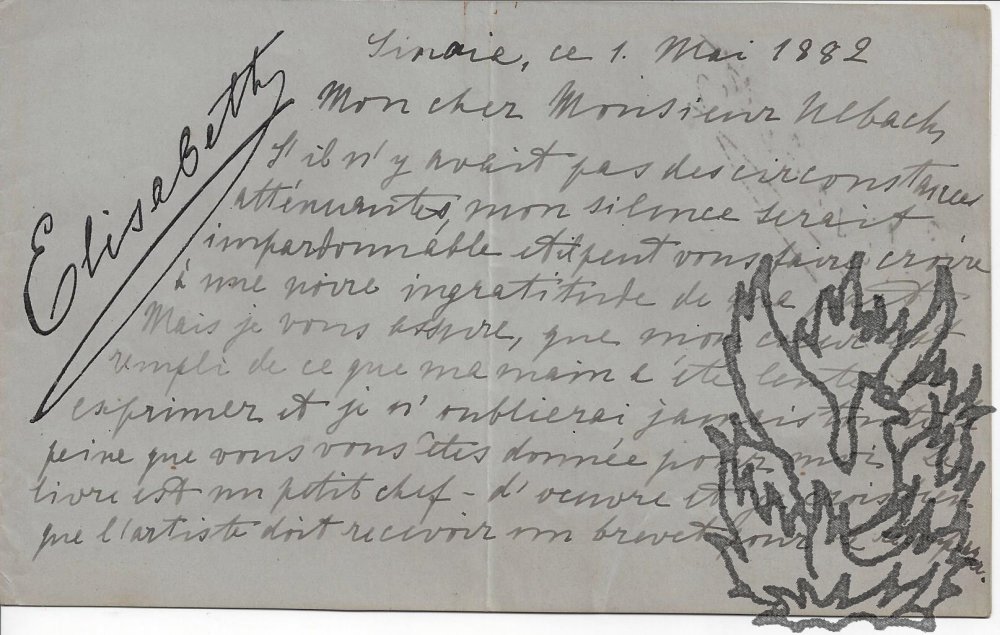 Elisabeth
Sinaia, ce 1. Mai 1882
Mon cher Monsieur Ulbach,
S'il n'y avait pas des circonstances
atténuantes, mon silence serait
impardonnable et il peut vous faire croire
à une noire ingratitude de ma part.
Mais je vous assure, que mon cœur est
rempli de ce que ma main a été lente à
exprimer et je n'oublierai jamais toute la
peine que vous vous êtes donnée pour moi. Le
livre est un petit chef-d'œuvre et je crois
que l'artiste doit recevoir un brevet pour